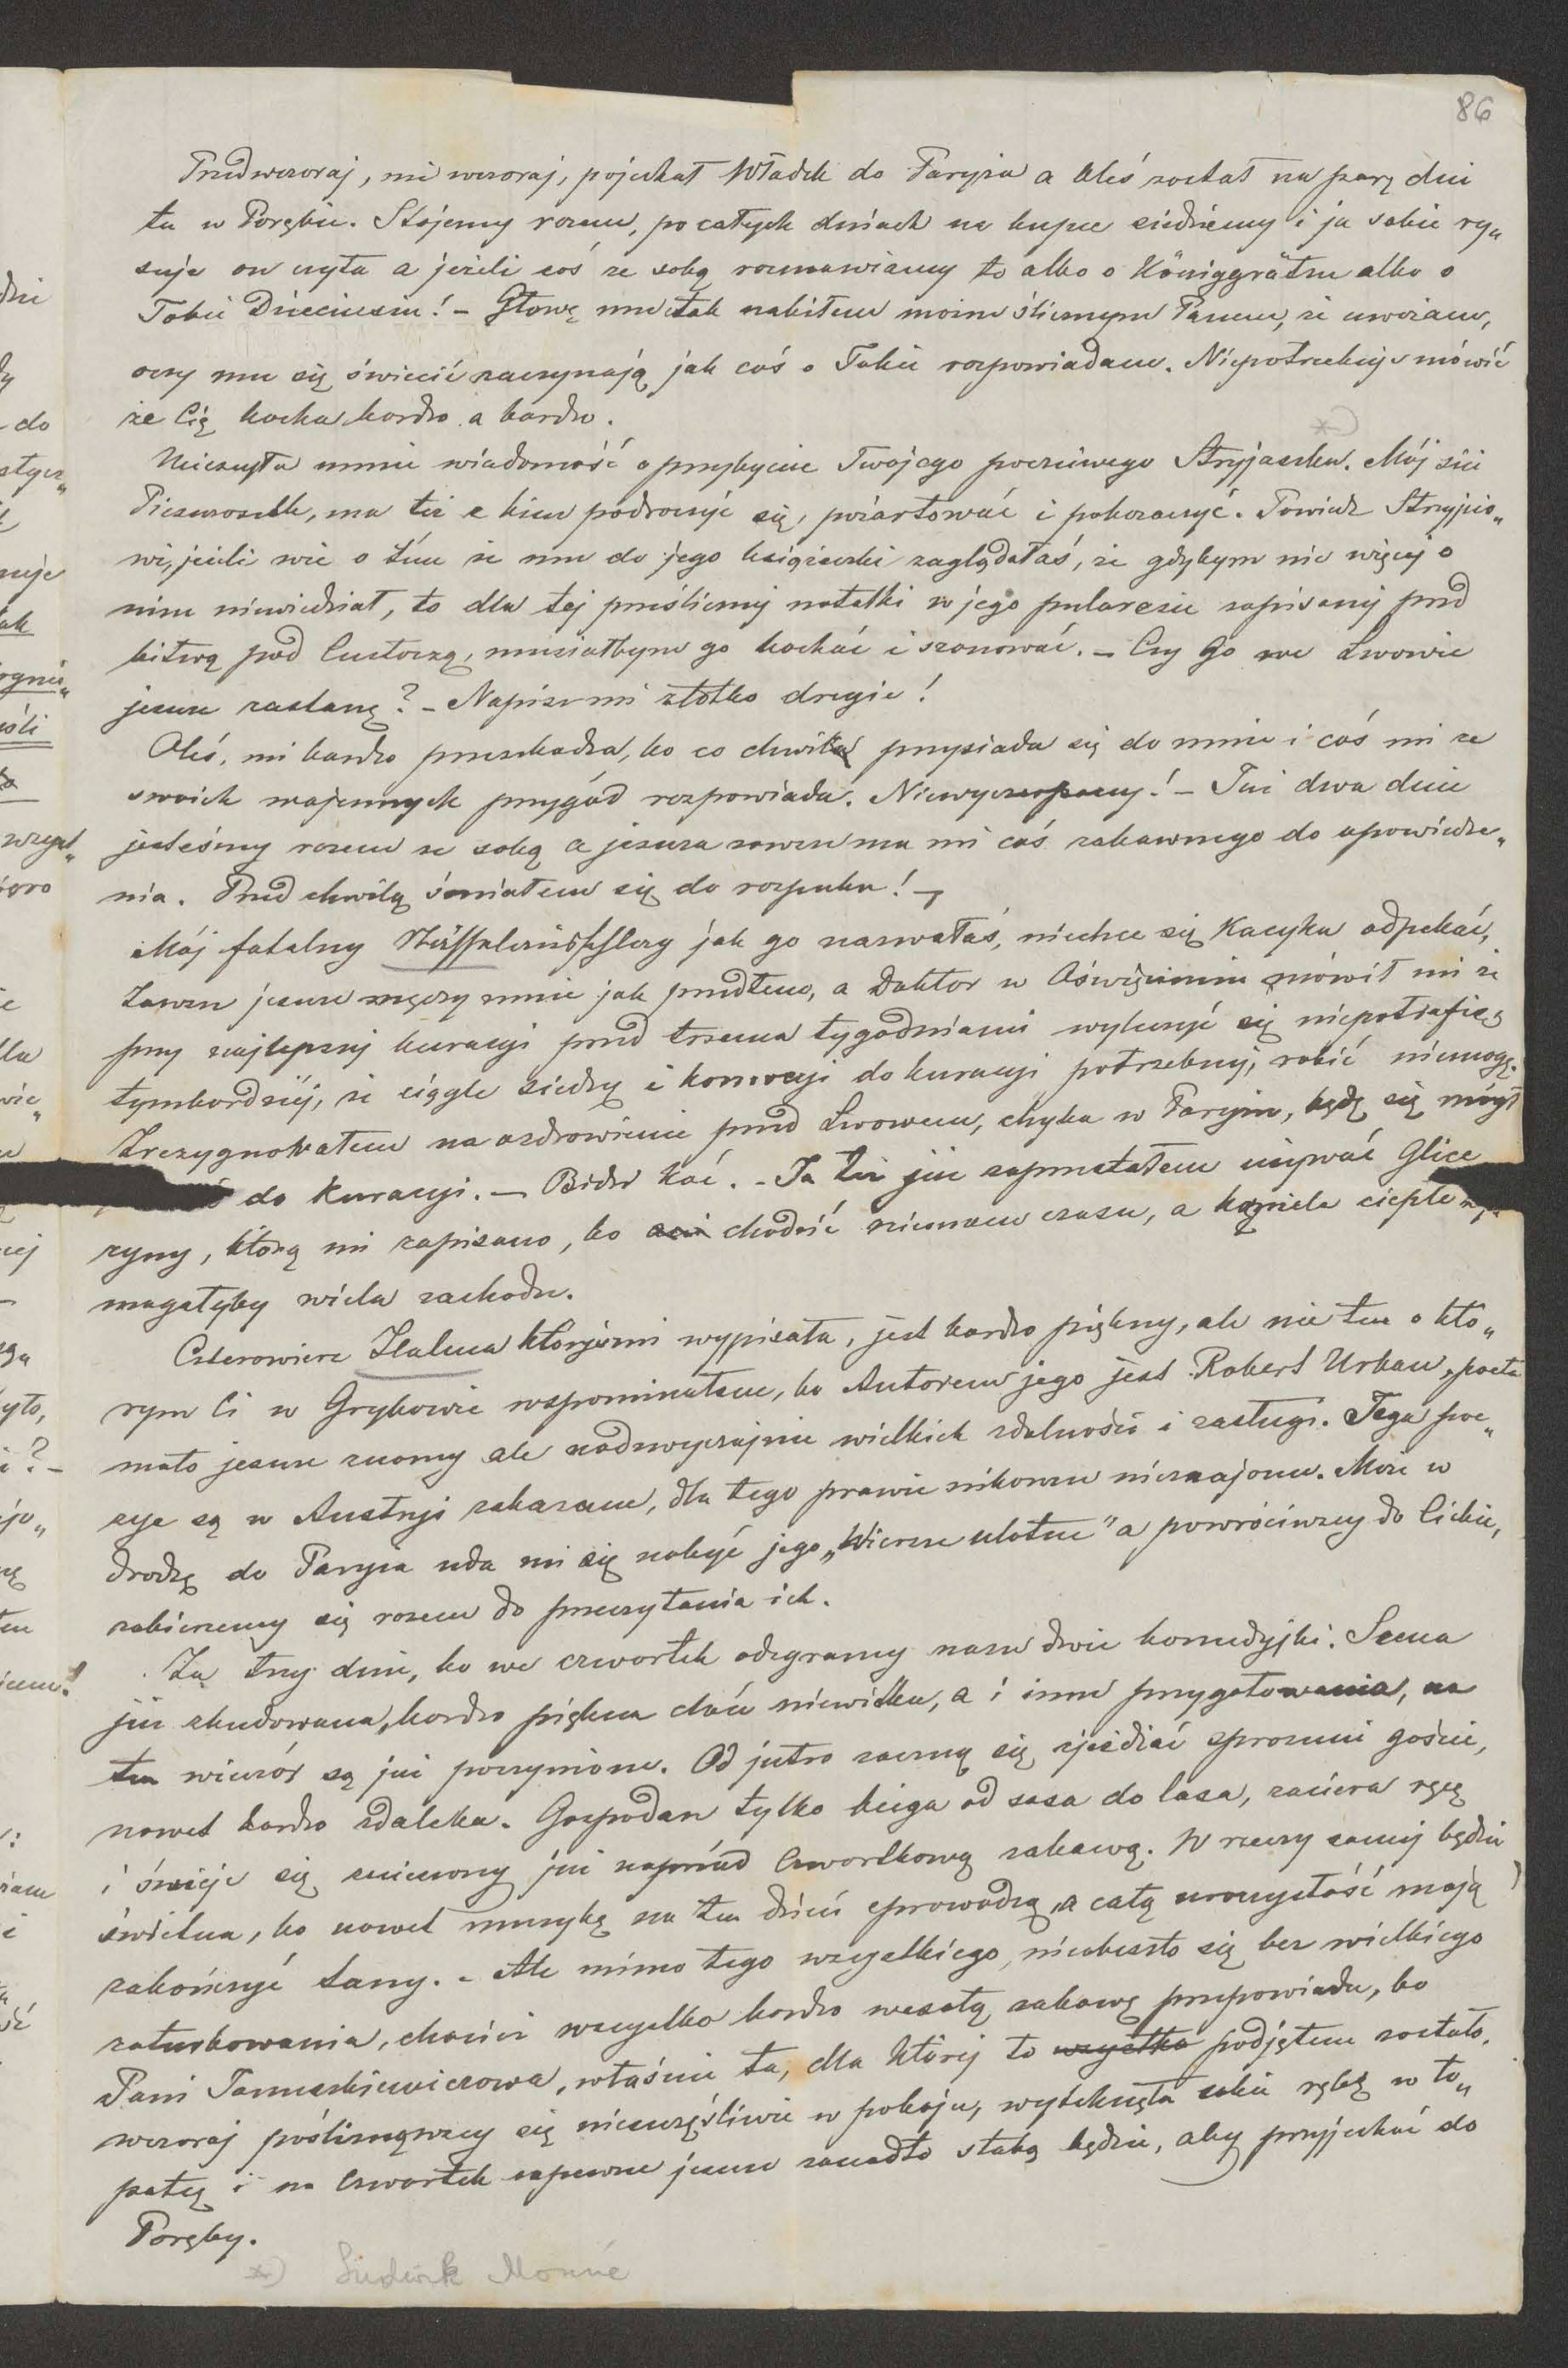 86
Przedwczoraj, nie wczoraj, pojechał Władek do Paryża a Oleś został na parę dni
tu w Porębie. Stójemy razem, po całych dniach na kupce siedziemy i ja sobie ry„
suję on czyta a jeżeli coś ze sobą rozmawiamy to albo o Königgrätzu albo o
Tobie Dzieciusiu! – Głowę mu tak nabiłem moim ślicznym Panem, że uważam,
oczy mu się świecić zaczynają jak coś o Tobie rozpowiadam. Niepotrzebuję mówić
że Cię kocha bardzo a bardzo.
*)
Ucieszyła mnie wiadomość o przybyciu Twojego poczciwego Stryjaszka. Mój ziu
Pieszczoszek, ma też z kim podroczyć się, pożartować i pokozaczyć. Powiedz Stryjcio„
wi, jeżeli wie o tém że mu do jego książeczki zaglądałaś, że gdybym nic więcej o
nim niewiedział, to dla tej prześlicznej notatki w jego pularesie zapisanej przed
bitwą pod Custozzą, musiałbym go kochać i szanować. – Czy Go we Lwowie
jeszcze zastanę? – Napisz mi złotko drogie!
Oleś, mi bardzo przeszkadza, bo co chwila przysiada się do mnie i coś mi ze
swoich wojennych przygód rozpowiada. Niewyczerpany! – Już dwa dnie
jesteśmy razem ze sobą a jeszcze zawsze ma mi coś zabawnego do opowiedze„
nia. Przed chwilą śmiałem się do rozpuku! –
Mój fatalny jak go nazwałaś, niechce się Kacyka odpękać,
zawsze jeszcze męczy mnie jak przedtem, a Doktor w Oświęcimiu mówił mi że
przy najlepszej kuracyi przed trzema tygodniami wyleczyć się niepotrafię,
tymbardziéj, że ciągle siedzę i komocyi do kuracyi potrzebnej, robić niemogę.
Zrezygnowałem na ozdrowienie przed Lwowem, chyba w Paryżu, będę się mógł
do kuracyi. – Bidś Kać. – Ja też już zaprzestałem używać Glice
ryny, którą mi zapisano, bo chodzić niemam czasu, a kąpiele ciepłe wy„
magałyby wiela zachodu.
Czterowiersz Italma któryśmi wypisała, jest bardzo piękny, ale nie ten o któ„
rym Ci w Grybowie wspominałem, bo Autorem jego jest Robert Urban, poeta
mało jeszcze znany ale nadzwyczajnie wielkich zdolności i zasługi. Jego poe„
zye są w Austryi zakazane, dla tego prawie nikomu nieznajome. Może w
drodze do Paryża uda mi się nabyć jego „Wiersze ulotne" a powróciwszy do Ciebie,
zabierzemy się razem do przeczytania ich.
Za trzy dnie, bo we czwartek odegramy nasze dwie komedyjki. Scena
już zbudowana, bardzo piękna choć niewielka, a i inne przygotowania, na
ten wieczór są już poczynione. Od jutro zaczną się zjeżdżać sproszeni goście,
nawet bardzo zdaleka. Gospodarz tylko biega od sasa do lasa, zaciera ręce
i śmieje się ucieszony już naprzód Czwartkową zabawą. W rzeczy samej będzie
świetna, bo nawet muzykę na ten dzień sprowadzą, a całą uroczystość mają
zakończyć tany. – Ale mimo tego wszystkiego, nieobeszło się bez wielkiego
załuskowania, chociaż wszystko bardzo wesołą zabawę przepowiada, bo
Pani Tomaszkiewiczowa, właśnie ta, dla której to wszystko podjętem zostało,
wczoraj pośliznąwszy się nieszczęśliwie w pokoju, wytchnęła sobie rękę w ło„
patcę i na Czwartek zapewne jeszcze zanadto słabą będzie, aby przyjechać do
Poręby.
*) Ludwik Monné